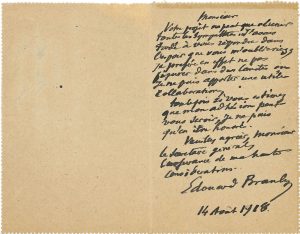 Monsieur
Votre projet ne peut que obtenir
toutes les sympathies
tardé à vous répondre dans
l'espoir que vous m'oublieriez
je préfère en effet ne pas
figurer dans des comités où
je ne puis apporter une utile
collaboration
vous estimez
que mon adhésion peut
vous servir, je ne puis
qu'en être honoré.
Veuillez agréer, Monsieur
le Secrétaire général,
l'assurance de ma haute
considération.
Edouard Branly
14 Août 1928.